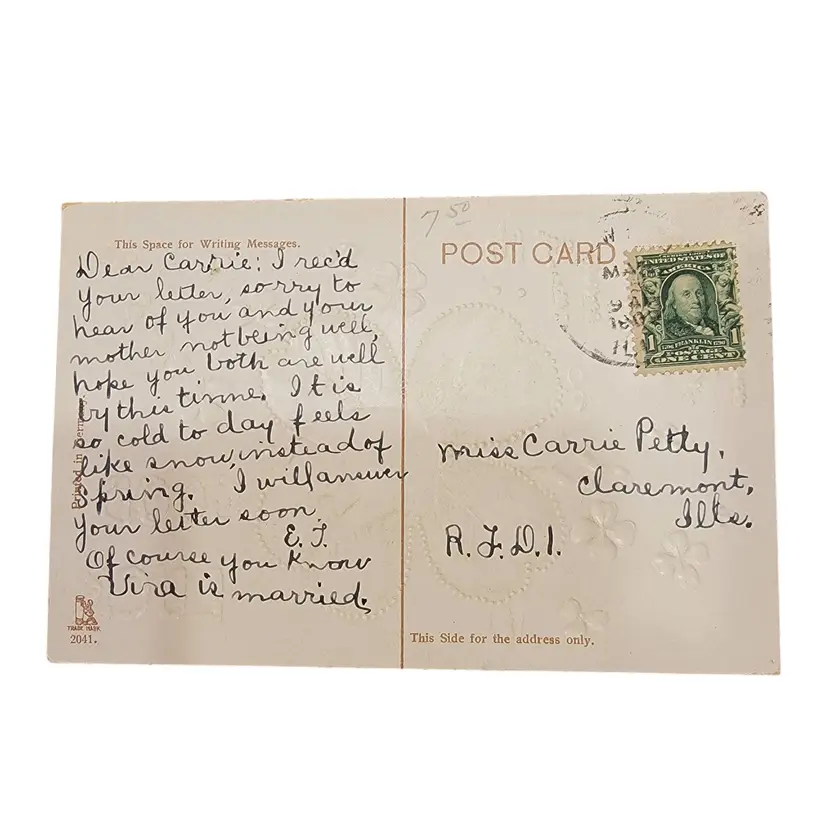 This Space for Writing Messages.
Dear Carrie: I rec'd
your letter, sorry to
hear of you and your
mother not being well,
hope you both are well
by this time. It is
so cold to day feels
like snow, instead of
Spring. I will answer
your letter soon
E. J.
Of course you know
Vira is married.
Printed in Germany.
TRADE MARK
2041.
7 50
POST CARD
SERIES 1902
UNITED STATES OF
AMERICA
1 1
1706 FRANKLIN 1790
POSTAGE
ONE CENT
Miss Carrie Petty,
Claremont,
Ills.
R.F.D.1.
This Side for the address only.